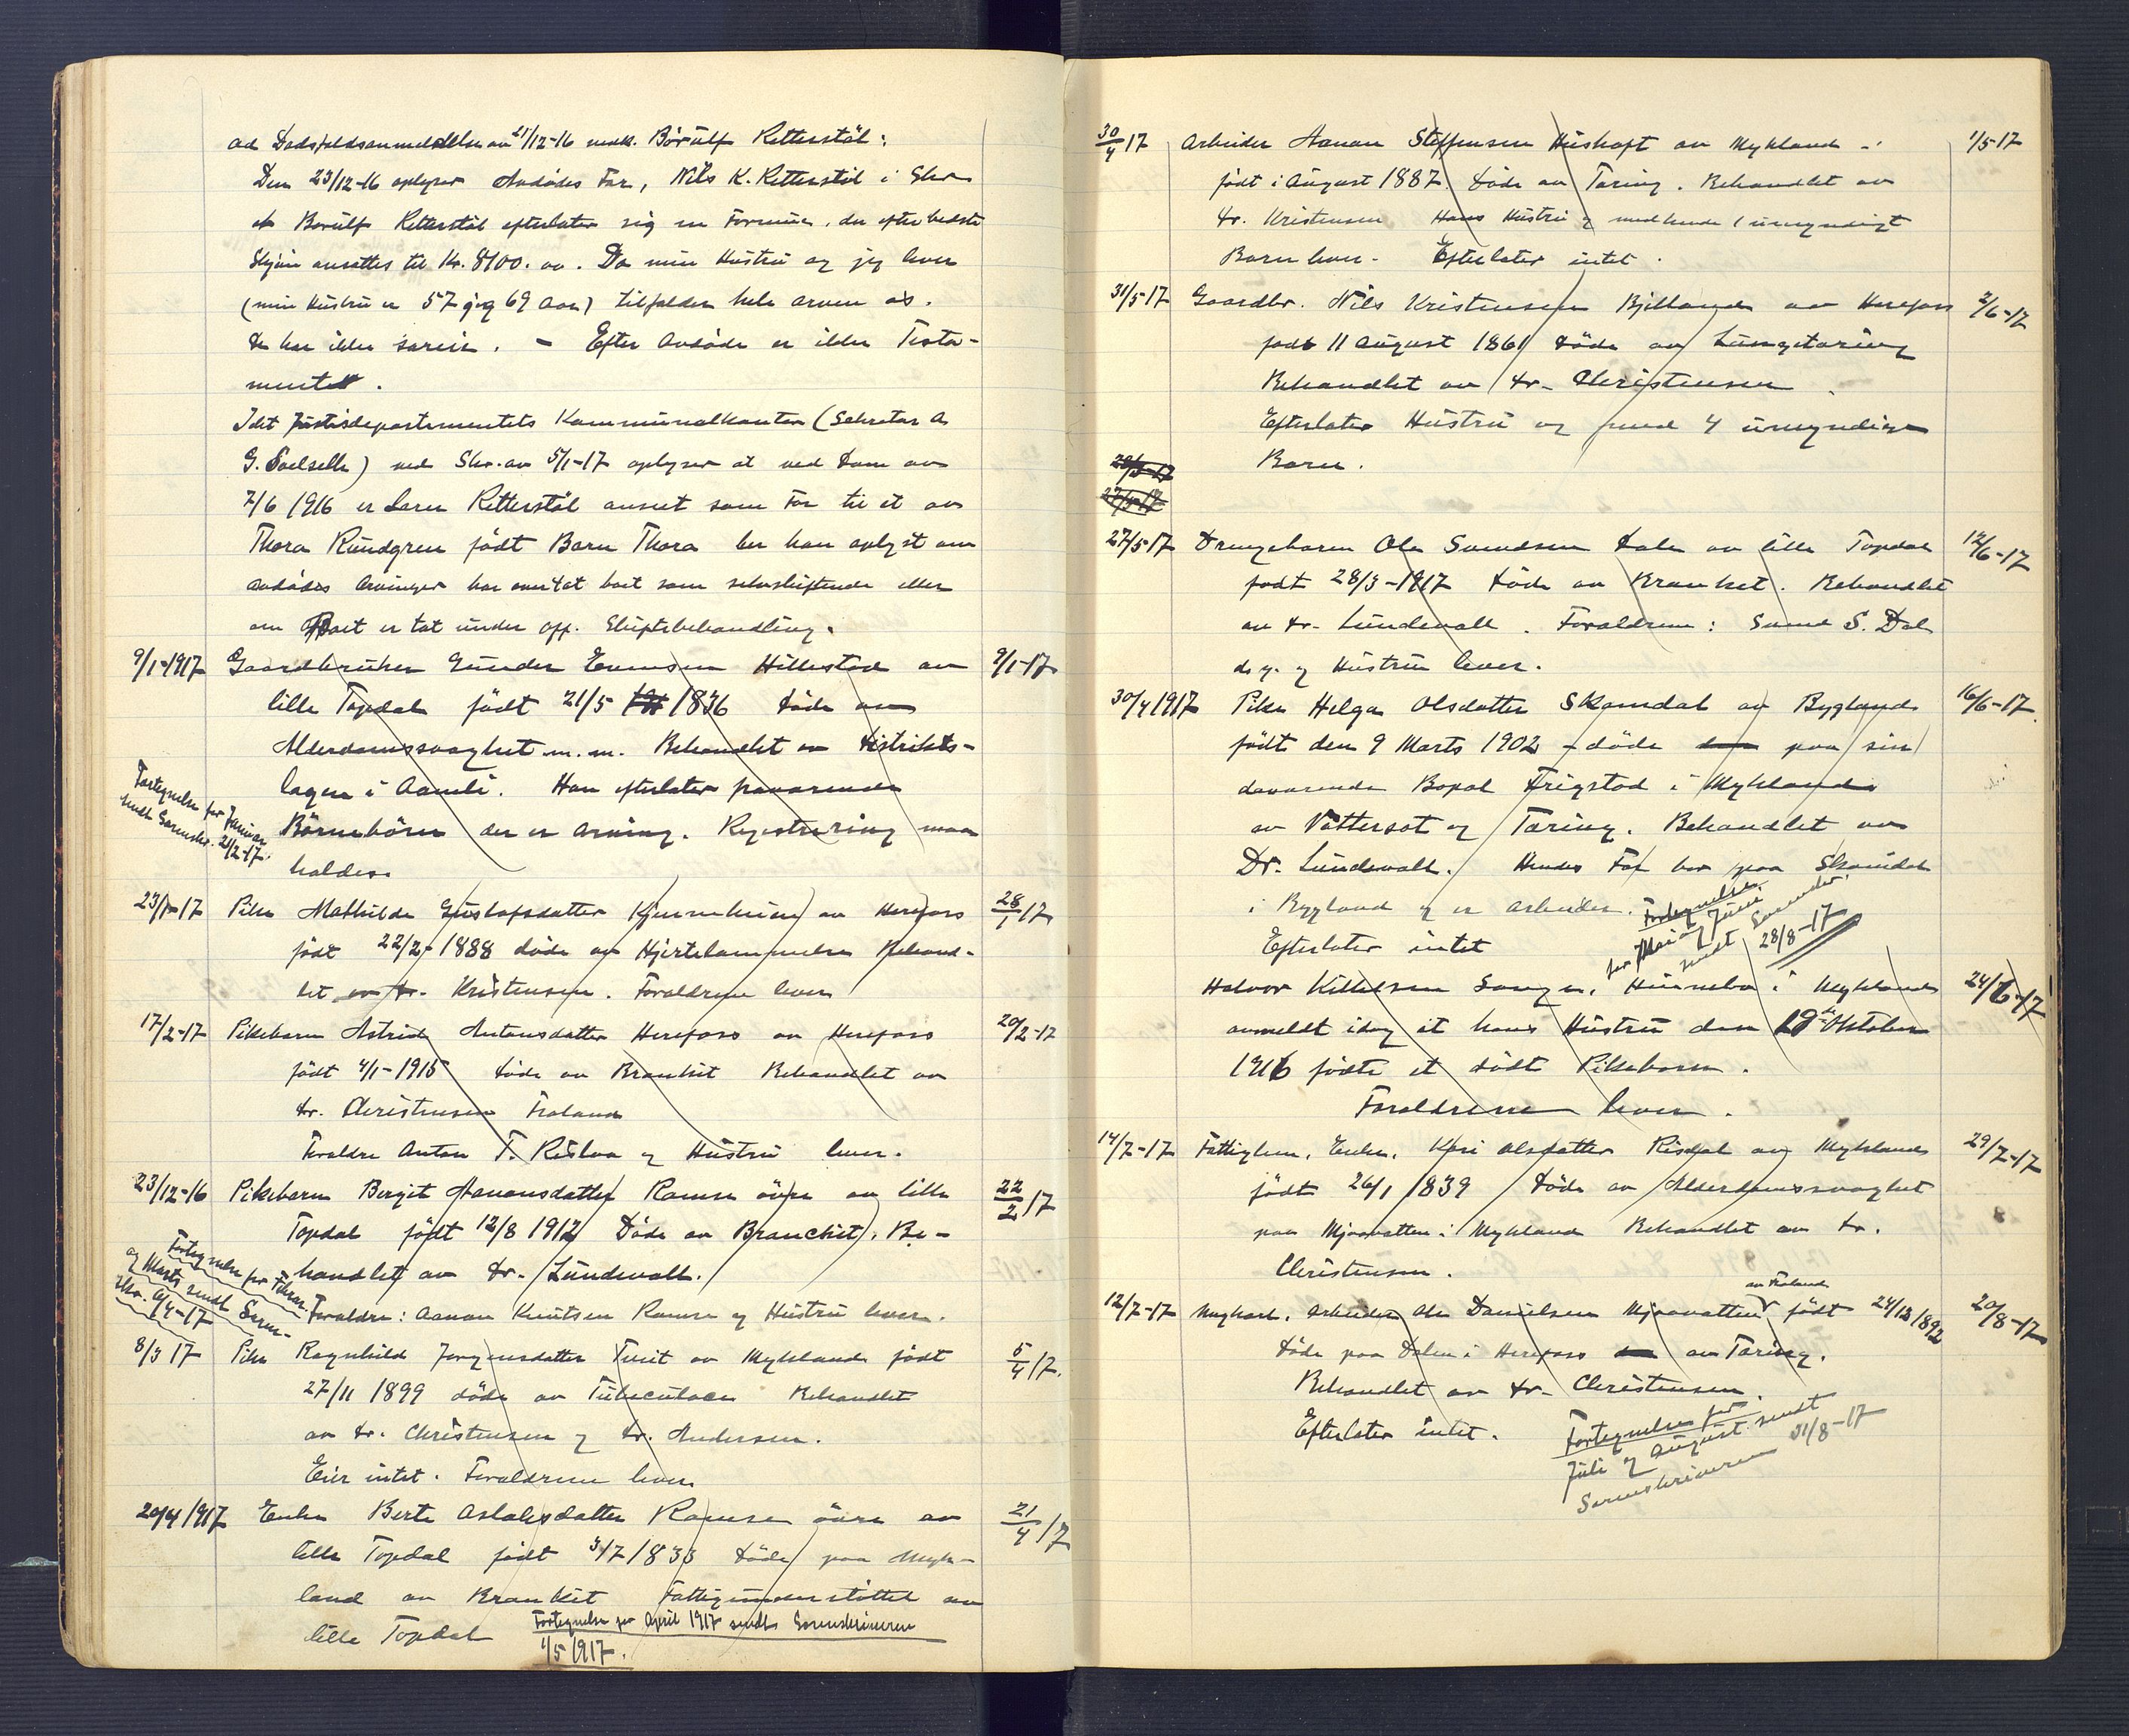 ad Dødsfaldsanmeldelse av 21/12-16 vedk. Börülf Retterstöl:
Den 23/12-16 oplyser Avdødes Far, Nils K. Retterstöl i Skr.
at Borülf Retterstöl efterlater sig en Formue, der efter bedste
Skjön ansættes til Kr. 8100.00. Da min Hustru og jeg lever
(min Hustru er 57 jeg 69 Aar) tilfalder hele arven os.
Testa-
mentet.
Idet Justisdepartementets Kommunalkontor (Sekretær A.
G.) ved Skr. av 5/1-17 oplyser at ved Dom av
7/6 1916 er Retterstöl anseet som Far til et av
Thora Rundgren født Barn Thora bes han oplyst om
avdødes Arvinger har overtat boet som selvskiftende eller
om Boet er tat under off. Skiftebehandling.
9/1-1917 Gaardbruker Gunder Evensen Hillestad av 9/1-17
lille Topdal født 21/5 1836 døde av
Alderdomssvaghet m.m. Behandlet av Distrikts-
lægen i Aamli. Han efterlater fraværende
Fortegnelse for Januar
sendt Sorenskr. 2/2-17.
Börnebörn der er Arving. Registrering maa
holdes.
23/1-17 Pike Mathilde Gustafsdatter av Herefoss 28/1 17
født 22/2-1888 døde av Hjertelammelse Behand-
let av Dr. Kristensen. Forældrene lever
17/2-17 Pikebarn Astrid Antonsdatter Herefoss av Herefoss 20/2-17
født 4/1-1915 døde av Bronkit Behandlet av
Dr. Christensen Froland
Forældre Anton T. og Hustru lever.
23/12-16 Pikebarn Bergit Aanonsdatter Ramse övre av lille 22/2 17
Topdal født 12/8 1912 Døde av Branchit. Be-
handlet av Dr. Lundevall.
Fortegnelse for Februar
og Marts sendt Soren-
skr. 9/4-17
Forældre: Aanon Knutsen Ramse og Hustru lever.
8/3 17 Pike Ragnhild Jørgensdatter Tveit av Mykland født 5/4 17.
27/11 1899 døde av Tuberculose Behandlet
av Dr. Christensen og Dr. Andersen.
Eier intet. Forældrene lever
20/4 1917 Enke Berte Aslaksdatter Ramse övre av 21/4 17
lille Topdal født 3/7 1833 døde paa Myk-
land av Bronkit Fattigunderstøttet av
lille Topdal
Fortegnelse for April 1917 sendt Sorenskriveren
1/5 1917.
30/4 17 Arbeider Aanon Steffensen Hushoft av Mykland 1/5-17
født i August 1887. Døde av Tæring. Behandlet av
Dr. Kristensen Hans Hustru og med hende 1 umyndigt
Barn lever. Efterlater intet.
31/5-17 Gaardbr. Nils Kristensen Bjelland av Herefoss 2/6-17
født 11 August 1861 døde av Lungetæring
Behandlet av Dr. Christensen
Efterlater Hustru og med 4 umyndige
Barn.
27/5-17 Drengebarn Ole Svendsen Dale av lille Topdal 12/6-17
født 28/3-1917 døde av Bronkit. Behandlet
av Dr. Lundevall. Forældrene: Svend S. Dale
d.y. og Hustru lever.
30/4 1917 Pike Helga Olsdatter Skomdal av Bygland 16/6-17
født den 9 Marts 1902 - døde paa sin
daværende Bopæl Frigstad i Mykland
av Vattersot og Tæring. Behandlet av
Dr. Lundevall. Hendes Far bor paa Skomdal
i Bygland og er Arbeider.
Efterlater intet
Fortegnelse
for Mai og Juni
sendt Sorenskr.
28/8-17
Halvor Kittelsen i Mykland 24/6-17
anmeldt idag at hans Hustru den 19de Oktober
1916 fødte et dødt Pikebarn.
Forældrene lever.
14/7-17 Fattiglem, Enke, Kari Olsdatter Risdal av Mykland 29/7-17
født 26/1 1839 Døde av Alderdomssvaghet
paa Mjaavatten i Mykland Behandlet av Dr.
Christensen.
av Froland
12/7-17 Ungkarl, Arbeider Ole Danielsen Mjaavatten født 24/12 1892 20/8-17
Døde paa Dalen i Herefoss av Tæring.
Behandlet av Dr. Christensen.
Efterlater intet.
Fortegnelse for
Juli og August sendt
Sorenskriveren 31/8-17